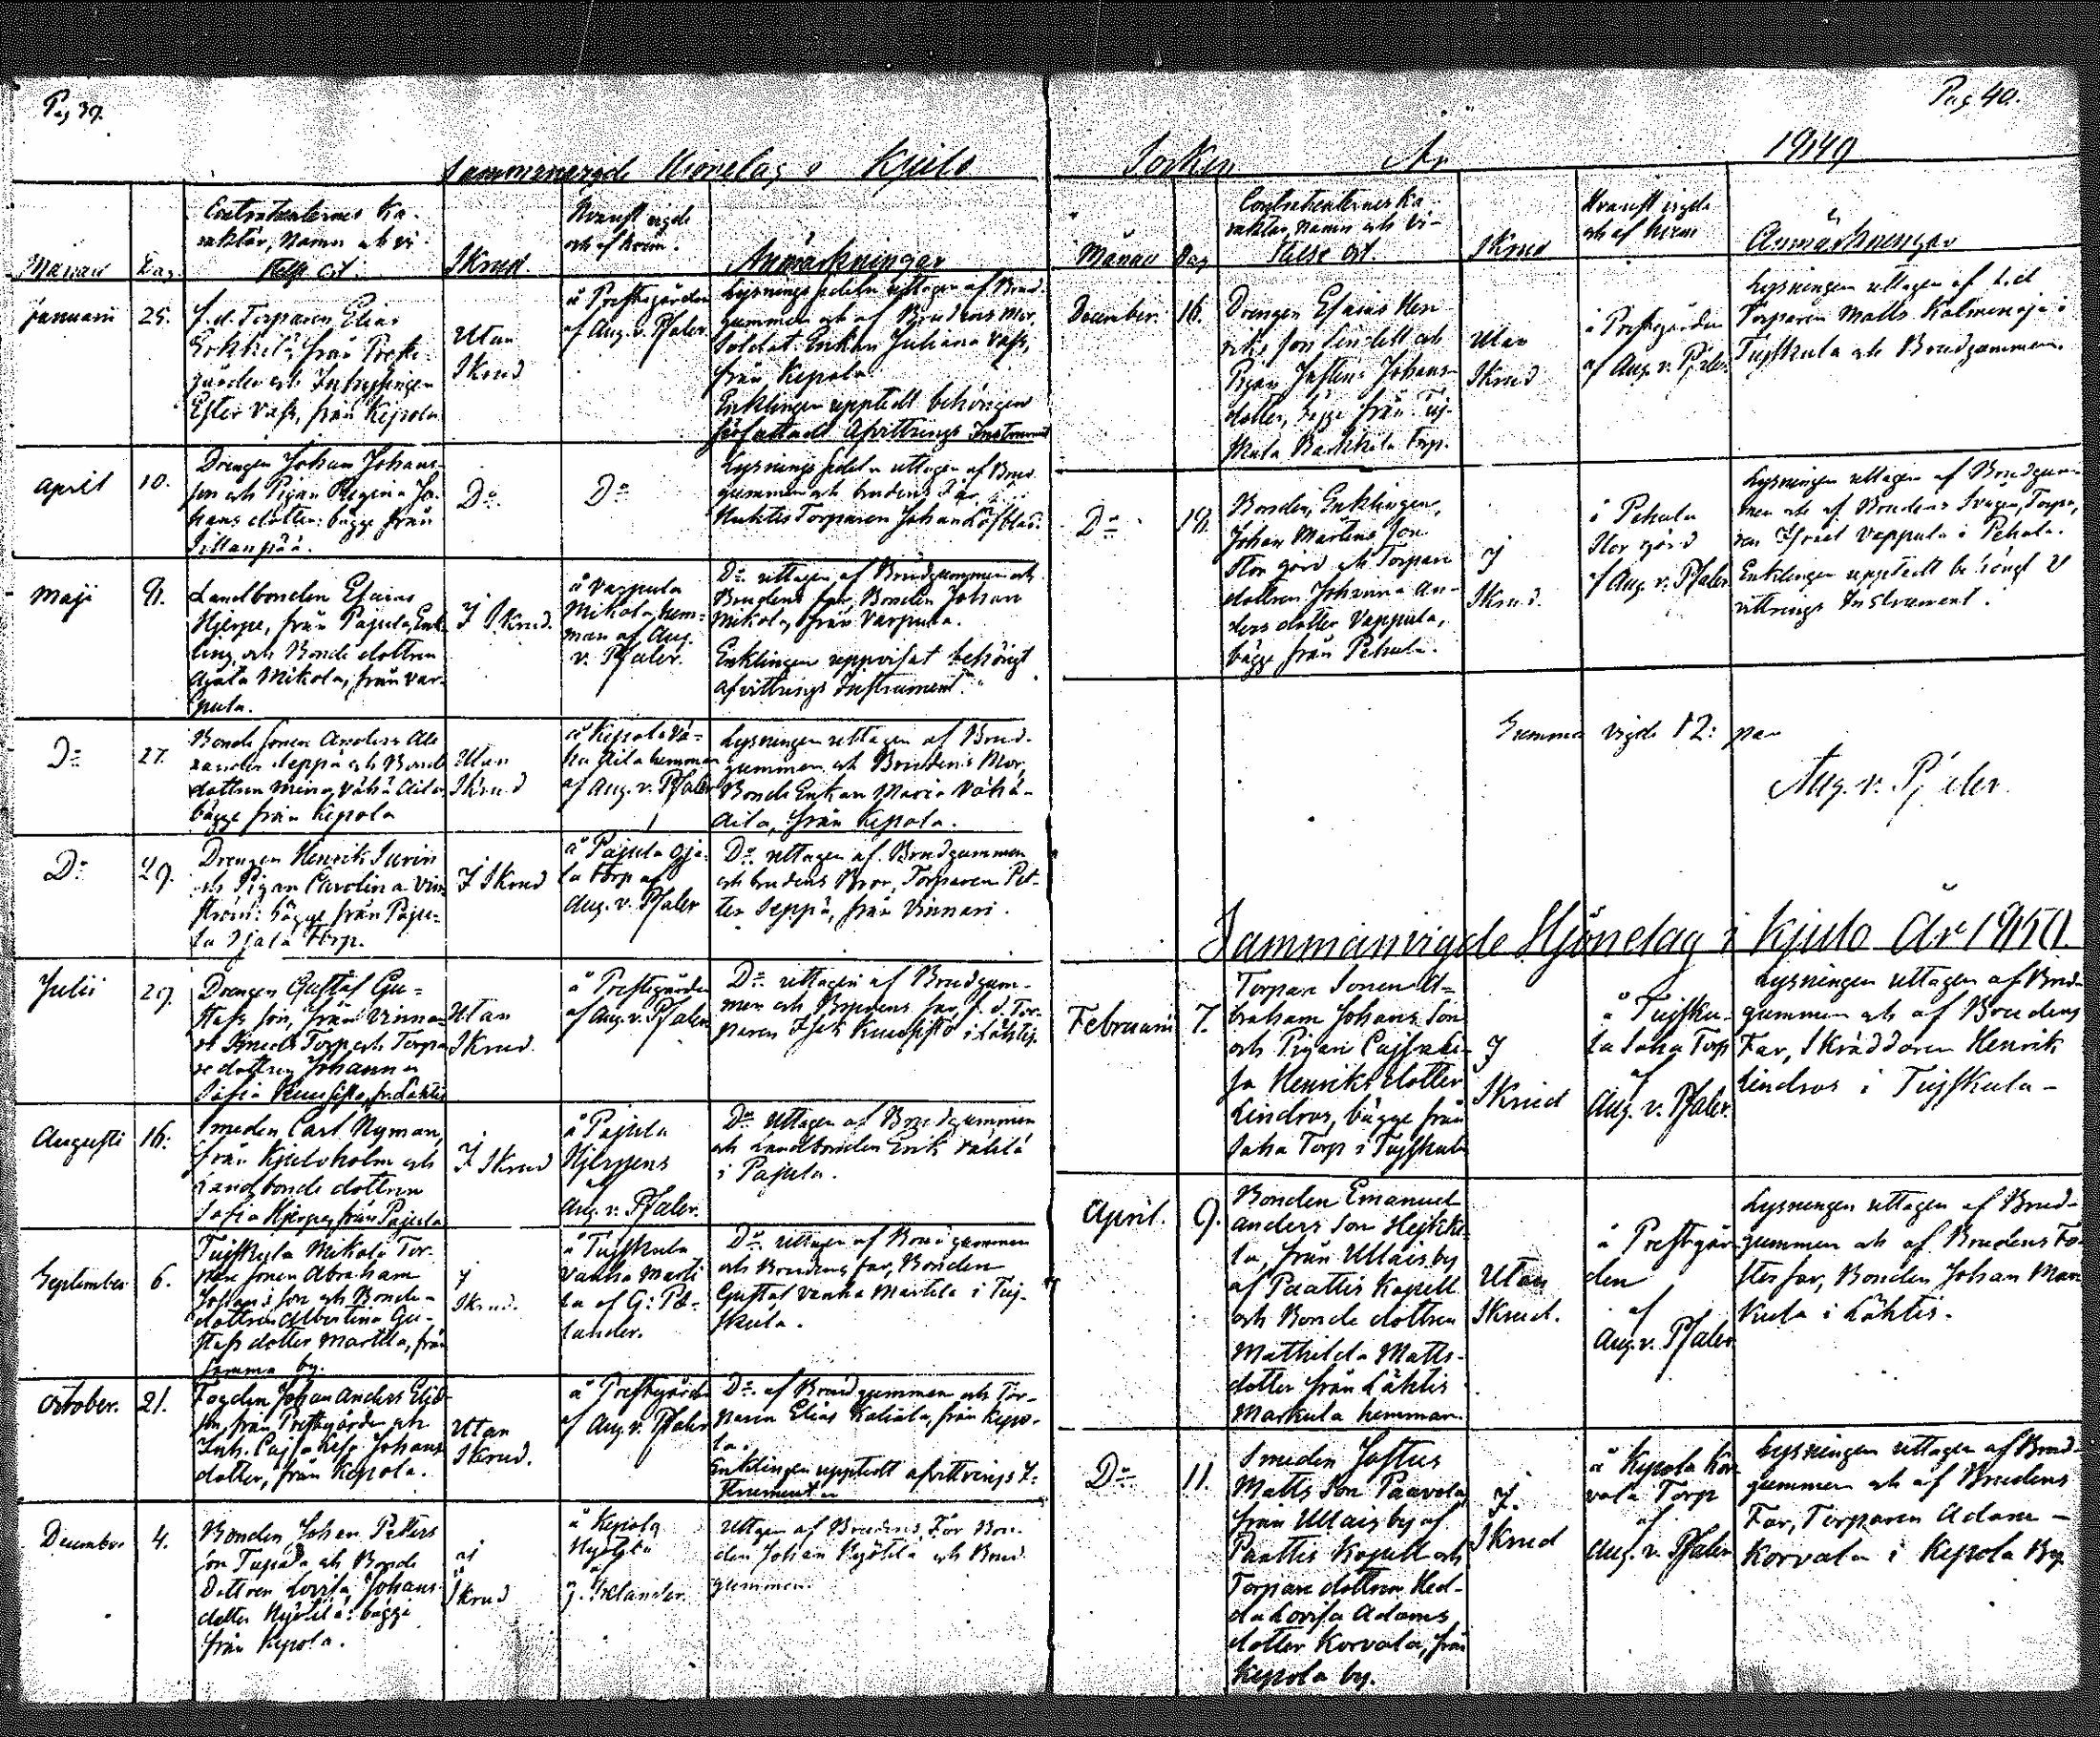 Pag 39.
Sammanvigde Hionelag i Kjulo
Månad
Dag
Contrahenternes Ka-
raktär, Namn och vi-
stelse ort.
Skrud.
Hvarest vigde
och af hvem.
Anmärkningar
Januarii
25.
f. d. Torparen Elias
Erkkilä från Prest-
gården och Inhysingen
Ester Vass, från Kepola
Utan
Skrud
å Prestegården
af Aug. v. Pfaler.
Lysnings sedeln uttagen af Brud-
gummen och af Brudens Mor,
Soldat Enkan Juliana Vass,
från Kepola.
Enklingen upptedt behörigen
författadt Afvittrings Instrument
April
10.
Drengen Johan Johans-
son och Pigan Regina Jo-
hans dotter: bägge från
Sillanpää.
Do
Do
Lysnings sedeln uttagen af Brud
gummen och brudens Far,
Torparen Johan Löfblad.
Maji
8.
Landbonden Esaias
Hjerpe, från Pajula, Enk-
ling, och Bonde dottren
Agata Mikola, från Var-
pula.
I Skrud.
å Varpula
Mikola hem-
man af Aug.
v. Pfaler.
Do uttagen af Brudgummen och
Brudens far, Bonden Johan
Mikola, från Varpula.
Enklingen uppvisat behörigt
afvittrings Instrument.
Do
27.
Bonde sonen Anders Ale
xander Seppä och Bonde
dottren Mina Vähä Aila
bägge från Kepola
Utan
Skrud
å Kepola Vä-
hä Aila hemman
af Aug. v. Pfaler
Lysningen uttagen af Brud-
gummen och Brudens Mor,
Bonde Enkan Maria Vähä-
Aila, från Kepola.
Do
29.
Drengen Henrik Surin
och Pigan Carolina Vin
ström: bägge från Paju-
la Ojala Torp.
I Skrud
å Pajula Oja-
la torp af
Aug. v. Pfaler
Do uttagen af Brudgummen
och brudens Bror, Torparen Pet-
ter Seppä, från Vinnari.
Julii
29.
Drengen Gustaf Gu-
stafs son, från Vinna-
Torp och Torpa
re dottren Johanna
Sofia
Utan
Skrud.
å Prestegården
af Aug. v. Pfaler
Do uttagen af Brudgum-
men och Brudens far, f. d. Tor-
paren i Lähtis.
Augusti
16.
Smeden Carl Nyman,
från Kjuloholm och
Landbonde dottren
Sofia Hjerpe, från Pajula
I Skrud
å Pajula
Hjerppens
af
Aug. v. Pfaler.
Do uttagen af Brudgummen
och Landbonden Erik
i Pajula.
September
6.
Tujskula Mikola Tor-
pare sonen Abraham
Johans son och Bonde-
dottren Albertina Gu-
stafs dotter Marttila, från
samma by.
I
Skrud.
å Tujskula
Vanha Martti
la af G: Pe-
lander.
Do uttagen af Brudgummen
och Brudens far, Bonden
Gustaf Vanha Marttila i Tuj-
skula.
October.
21.
Fogden Johan Anders Elias
son från Prestegården och
Inh. Cajsa Johans
dotter, från Kepola.
Utan
Skrud.
å Prestegården
af Aug. v. Pfaler
Do af Brudgummen och Tor-
paren Elias från Kepo-
la.
Enklingen upptedt afvittrings I-
strument
December
4.
Bonden Johan Petters
son Tupala och Bonde
Dottren Lovisa Johans
dotter Hyötilä: bägge
från Kepola.
I
Skrud
å Kepola
Hyötilä
af
G. Pelander.
Uttagen af Brudens Far Bon-
den Johan Hyötilä och Brud
gummen.
Pag 40.
Socken
År
1849
Månad
Dag
Contrahenternes Ka-
raktär, Namn och vi-
stelse ort.
Skrud
Hvarest vigde
och af hvem
Anmärkningar
December.
16.
Drengen Esaias Hen-
riks son Lindell och
Pigan Justina Johans-
dotter, bägge från Tuj-
skula Torp.
Utan
Skrud
i Prestegården
af Aug. v. Pfaler.
Lysningen uttagen af f. d
Torparen Matts i
Tujskula och Brudgummen.
Do
18.
Bonden, Enklingen,
Johan Mårtens son
Storgård och Torpare
dottren Johanna An-
ders dotter Vappula,
bägge från Pehula.
I
Skrud.
i Pehula
Storgård
af Aug. v. Pfaler
Lysningen uttagen af Brudgum-
men och af Brudens Svåger, Torpa-
ren Israel Vappula i Pehula.
Enklingen upptedt behörigt
vittrings Instrument.
Summa vigde 12: par
Aug. v. Pfaler
Sammanvigde Hjönelag i Kjulo År 1850.
Februarii
7.
Torpare Sonen A-
braham Johans Son
och Pigan Cajsa
Henriks dotter
Lindros, bägge från
Saha Torp i Tujskula
I
Skrud
å Tujsku-
la Saha Torp
af
Aug. v. Pfaler.
Lysningen uttagen af Brud-
gummen och af Brudens
Far, Skräddaren Henrik
Lindros i Tujskula-
April.
9.
Bonden Emanuel
Anders Son Hejkki-
la, från Ullais by
af Paattis Kapell
och Bonde dottren
Mathilda Matts-
dotter från Lähtis
Markula hemman.
Utan
Skrud.
å Prestegår-
den
af
Aug. v. Pfaler
Lysningen uttagen af Brud-
gummen och af Brudens Fo-
sterfar, Bonden Johan Mar
kula i Lähtis.
Do
11.
Smeden Justus
Matts Son Paavola,
från Ullais by af
Paattis Kapell och
Torpare dottren Hed-
da Lovisa Adams
dotter Korvala, från
Kepola by.
I.
Skrud
å Kepola Kor-
vala Torp
af
Aug. v. Pfaler
Lysningen uttagen af Brud-
gummen och af Brudens
Far, Torparen Adam-
Korvala i Kepola By